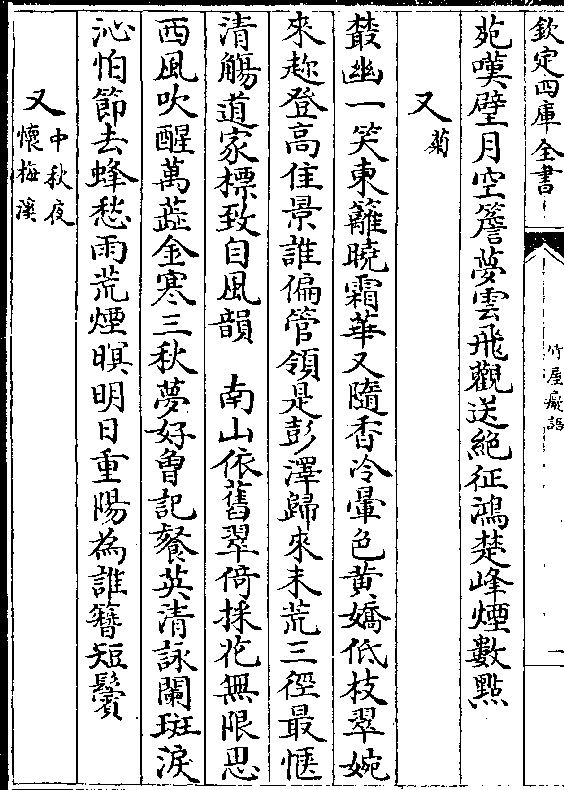 欽定四庫全書
竹屋癡語
一
苑嘆壁月空簷夢雲飛觀送絶征鴻楚峰煙數點
又菊
叢幽一笑東籬曉霜華又隨香冷暈色黄嬌低枝翠婉
來趂登高佳景誰偏管領是彭澤歸來未荒三徑最愜
清觴道家標致自風韻 南山依舊翠倚採花無限思
西風吹醒萬蕋金寒三秋夢好曾記餐英清詠闌斑淚
沁怕節去蜂愁雨荒煙暝明日重陽為誰簪短鬢
又中秋夜
懷梅溪